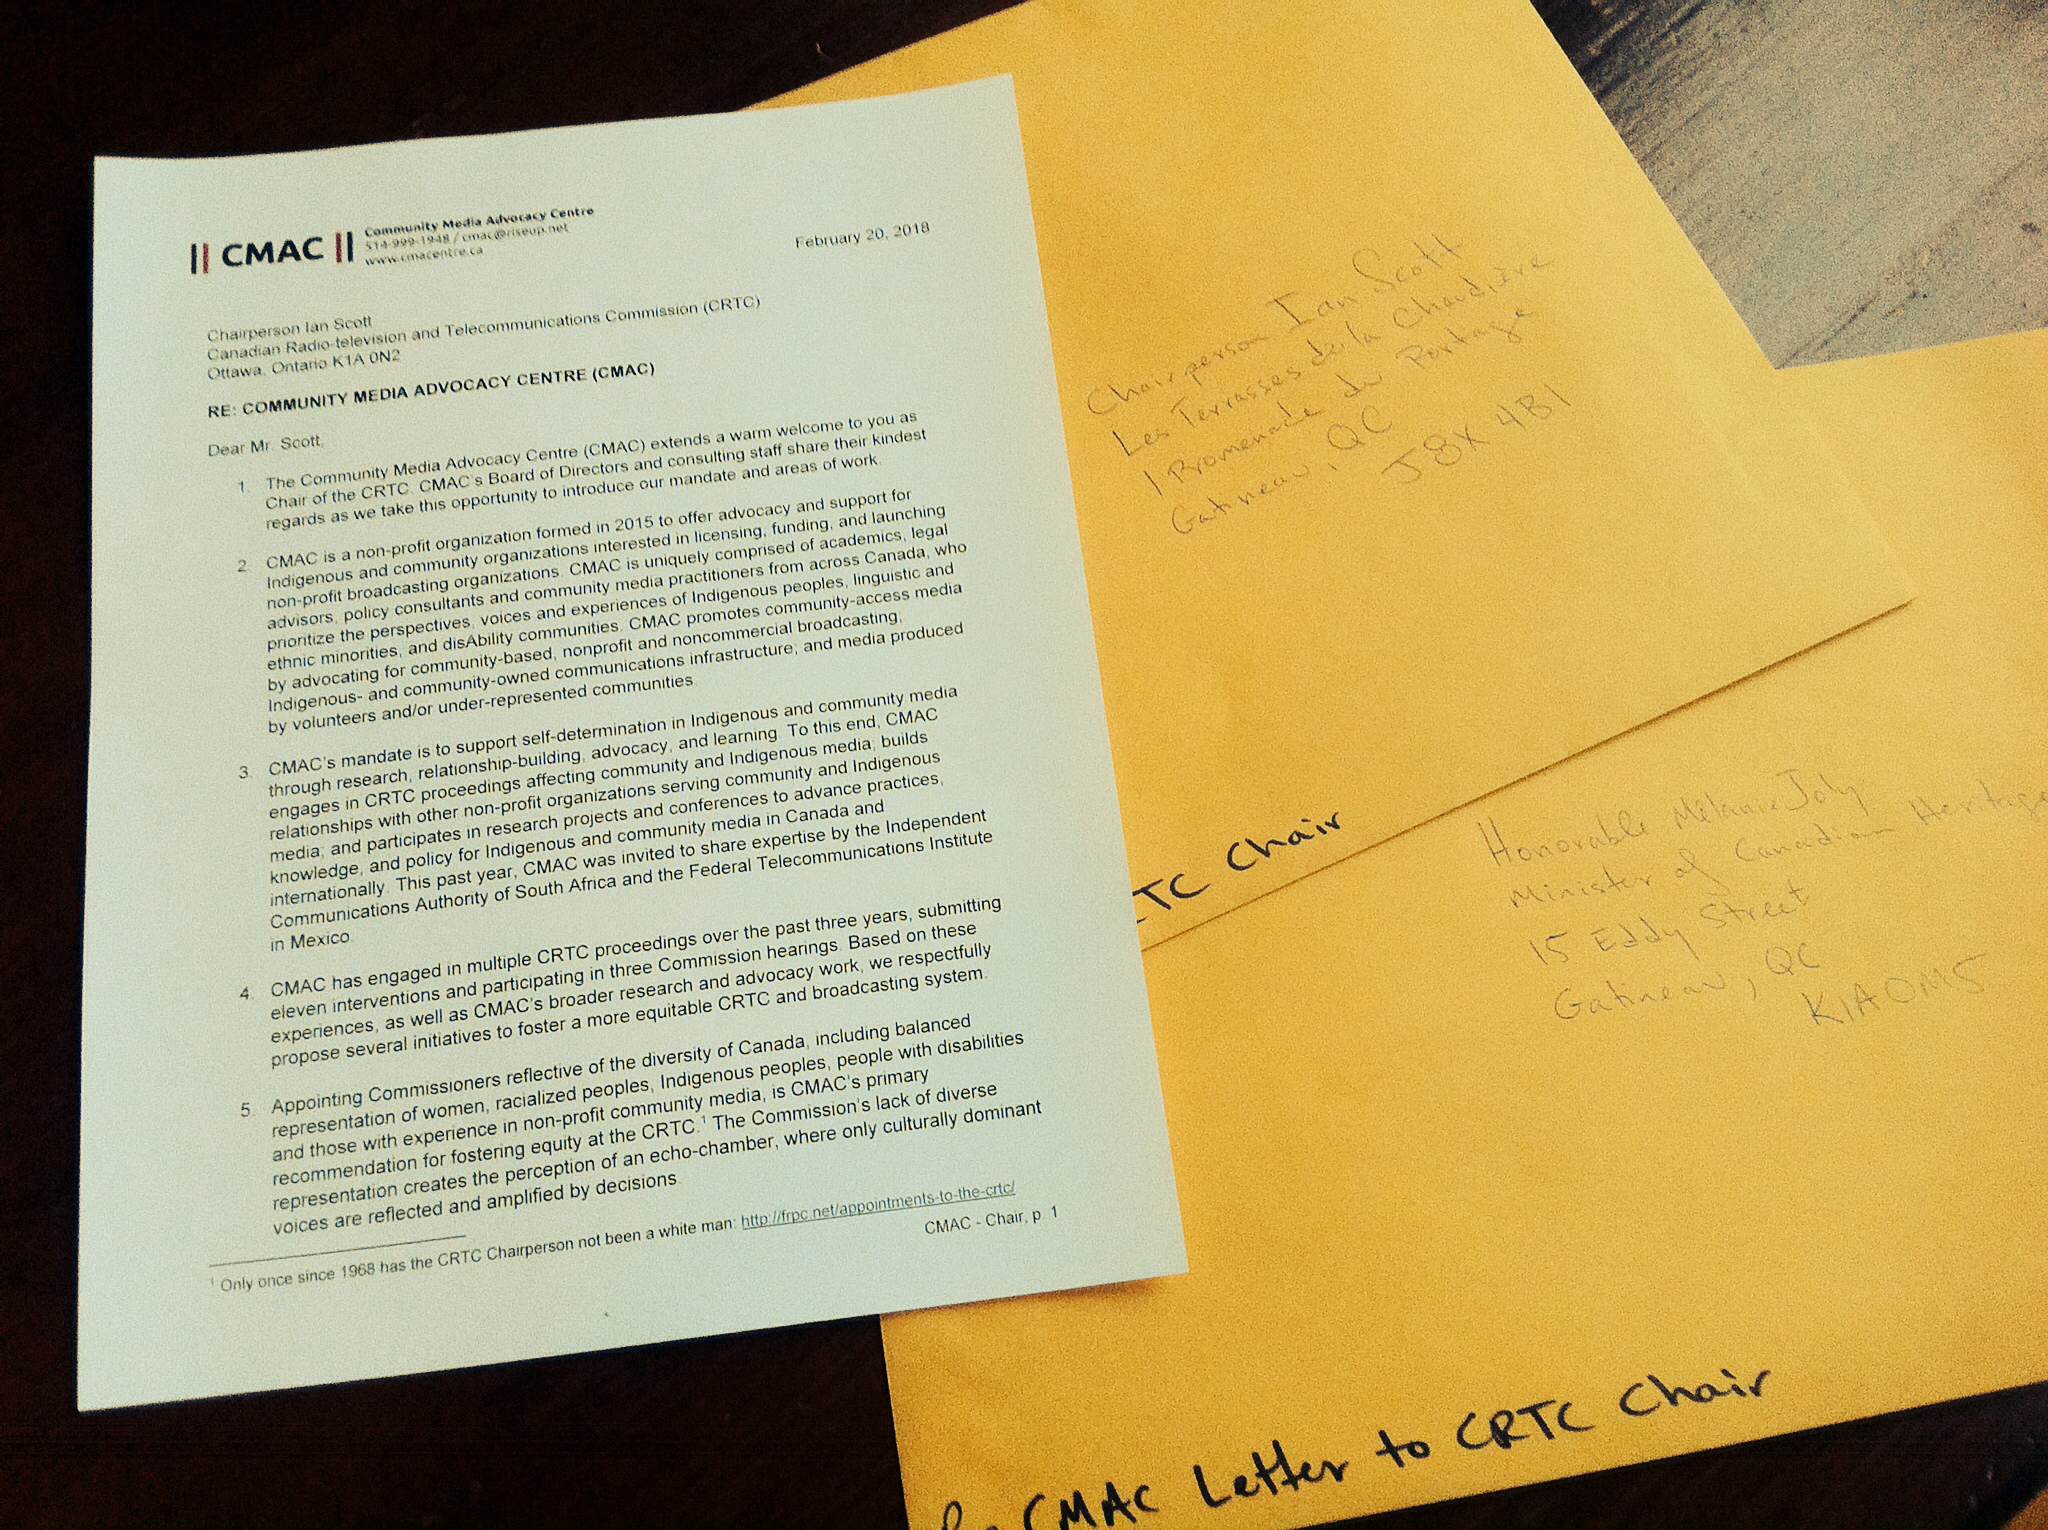 || CMAC ||
Community Media Advocacy Centre
514-999-1948 / cmac@riseup.net
www.cmacentre.ca
February 20, 2018
Chairperson Ian Scott
Canadian Radio-television and Telecommunications Commission (CRTC)
Ottawa, Ontario K1A 0N2
RE: COMMUNITY MEDIA ADVOCACY CENTRE (CMAC)
Dear Mr. Scott,
1. The Community Media Advocacy Centre (CMAC) extends a warm welcome to you as
Chair of the CRTC. CMAC's Board of Directors and consulting staff share their kindest
regards as we take this opportunity to introduce our mandate and areas of work.
2. CMAC is a non-profit organization formed in 2015 to offer advocacy and support for
Indigenous and community organizations interested in licensing, funding, and launching
non-profit broadcasting organizations. CMAC is uniquely comprised of academics, legal
advisors, policy consultants and community media practitioners from across Canada, who
prioritize the perspectives, voices and experiences of Indigenous peoples, linguistic and
ethnic minorities, and disAbility communities. CMAC promotes community-access media
by advocating for community-based, nonprofit and noncommercial broadcasting;
Indigenous- and community-owned communications infrastructure; and media produced
by volunteers and/or under-represented communities.
3. CMAC's mandate is to support self-determination in Indigenous and community media
through research, relationship-building, advocacy, and learning. To this end, CMAC
engages in CRTC proceedings affecting community and Indigenous media; builds
relationships with other non-profit organizations serving community and Indigenous
media; and participates in research projects and conferences to advance practices,
knowledge, and policy for Indigenous and community media in Canada and
internationally. This past year, CMAC was invited to share expertise by the Independent
Communications Authority of South Africa and the Federal Telecommunications Institute
in Mexico.
4. CMAC has engaged in multiple CRTC proceedings over the past three years, submitting
eleven interventions and participating in three Commission hearings. Based on these
experiences, as well as CMAC's broader research and advocacy work, we respectfully
propose several initiatives to foster a more equitable CRTC and broadcasting system.
5. Appointing Commissioners reflective of the diversity of Canada, including balanced
representation of women, racialized peoples, Indigenous peoples, people with disabilities
and those with experience in non-profit community media, is CMAC's primary
recommendation for fostering equity at the CRTC.¹ The Commission's lack of diverse
representation creates the perception of an echo-chamber, where only culturally dominant
voices are reflected and amplified by decisions.
¹ Only once since 1968 has the CRTC Chairperson not been a white man: http://frpc.net/appointments-to-the-crtc/
CMAC - Chair, p. 1
Chairperson Ian Scott
Les Terrasses de la Chaudière
1 Promenade du Portage
Gatineau, QC
J8X 4B1
TC Chair
Honorable Mélanie Joly
Minister of Canadian Heritage
15 Eddy Street
Gatineau, QC
K1A0M5
CMAC Letter to CRTC Chair